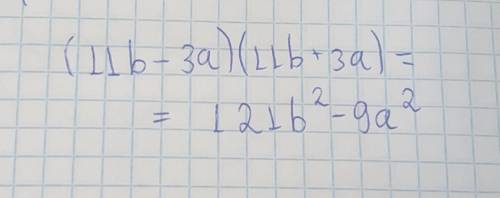 (11b - 3a)(11b + 3a) =
= 121b² - 9a²